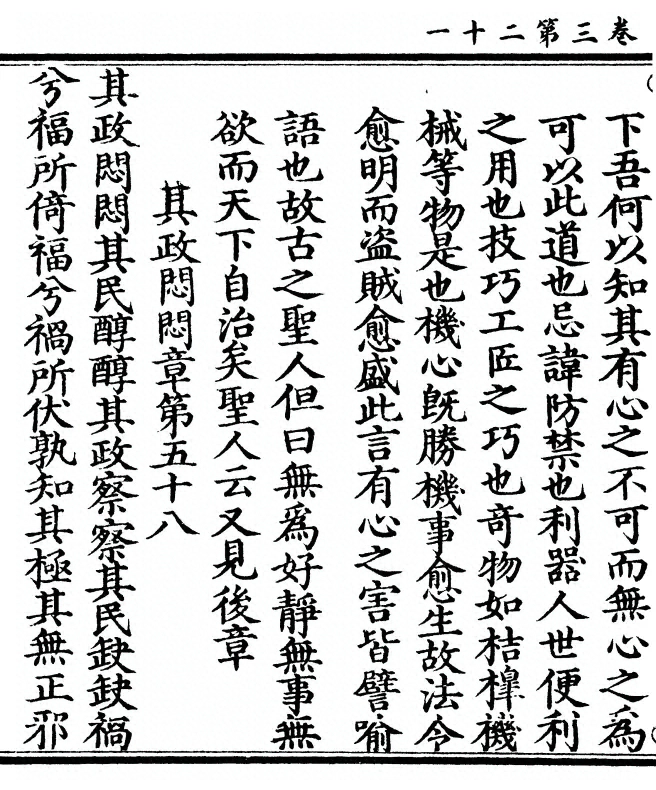 卷三第二十一
下吾何以知其有心之不可而無心之爲
可以此道也忌諱防禁也利器人世便利
之用也技巧工匠之巧也奇物如桔槹機
械等物是也機心既勝機事愈生故法令
愈明而盜賊愈盛此言有心之害皆譬喻
語也故古之聖人但曰無爲好靜無事無
欲而天下自治矣聖人云又見後章
其政悶悶章第五十八
其政悶悶其民醇醇其政察察其民缺缺禍
兮福所倚福兮禍所伏孰知其極其無正邪